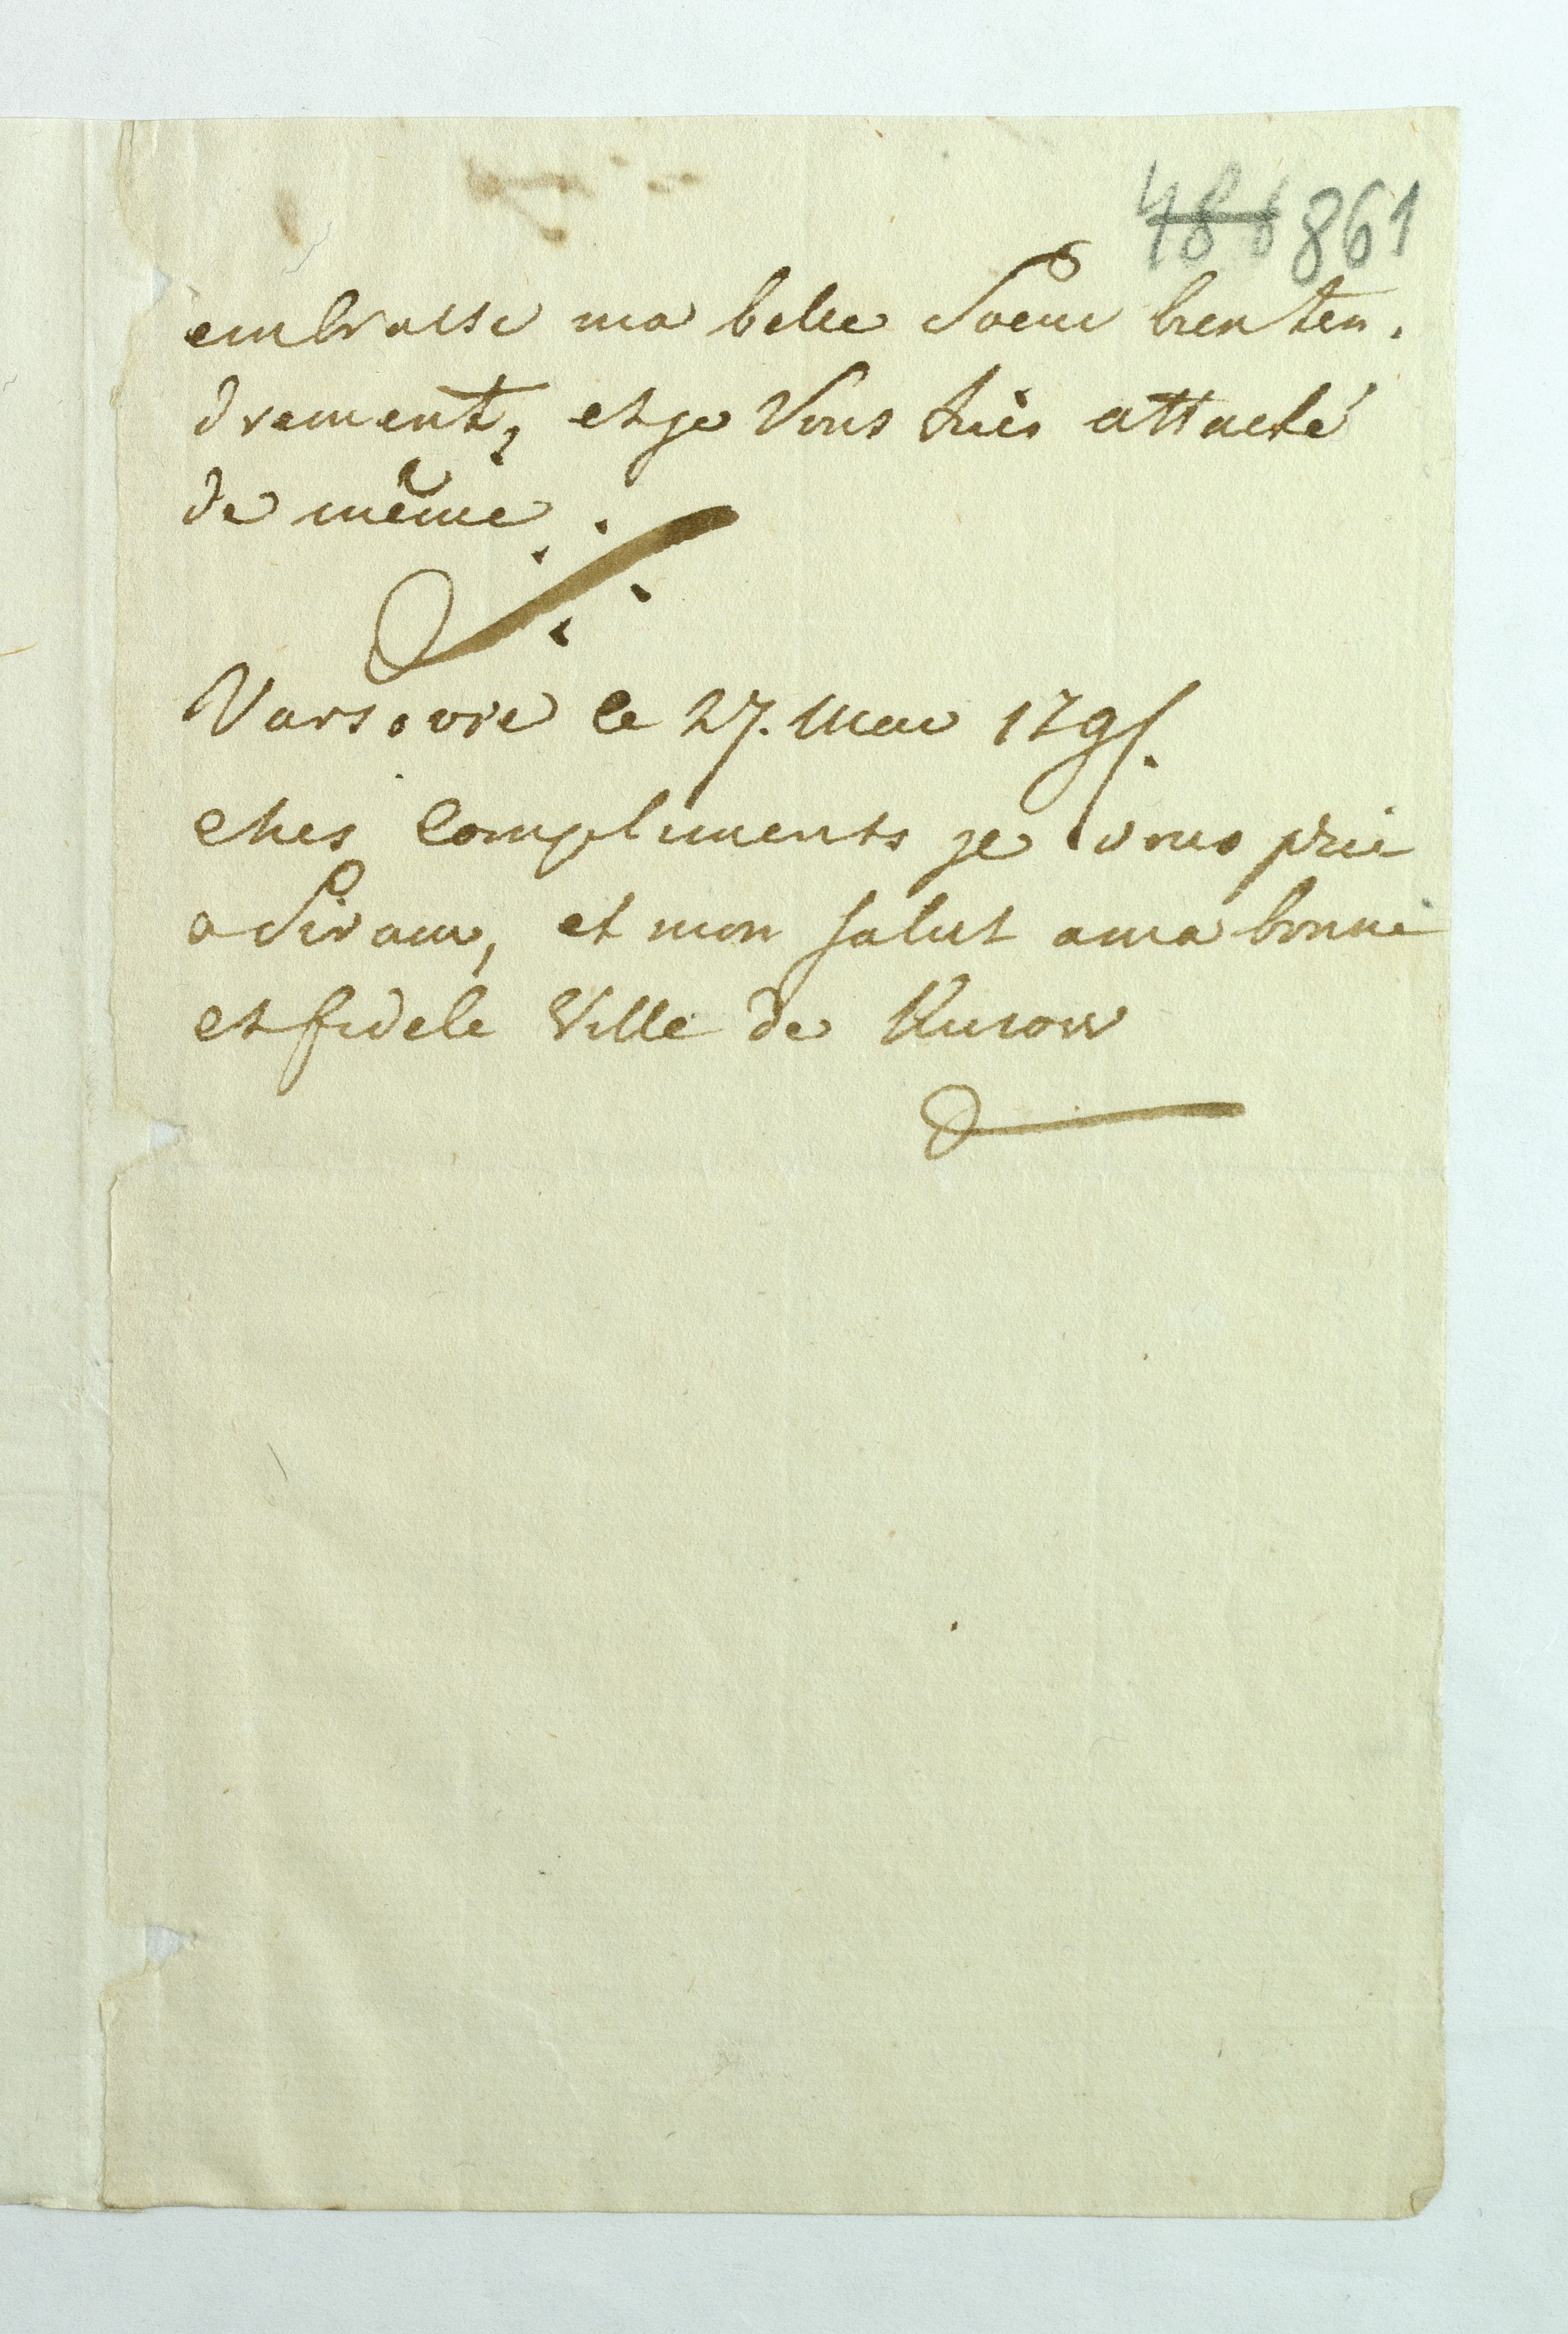 486 861
embrasse ma belle Soeur bien ten.
drement, et je Vous suis attaché
de même.
Varsovie le 27. Mai 1795.
Mes Compliments je vous prie
a, et mon salut a ma bonne
et fidele Ville de Kurow